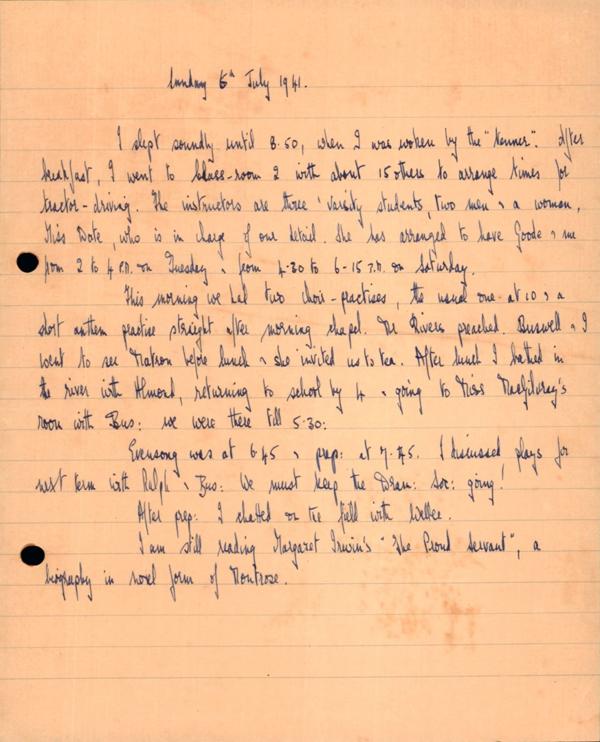 Sunday 6th July 1941.
I slept soundly until 8.50, when I was woken by the "tenner". After
breakfast, I went to class-room 2 with about 15 others to arrange times for
tractor-driving. The instructors are three 'varsity students, two men & a woman,
Miss Date, who is in charge of our detail. She has arranged to have Goode & me
from 2 to 4 P.M. on Tuesday & from 4-30 to 6-15 P.M. on Saturday.
This morning we had two choir-practises, the usual one at 10 & a
short anthem practise straight after morning chapel. Mr Rivers preached. Buswell & I
went to see Matron before lunch & she invited us to tea. After lunch I bathed in
the river with Almond, returning to school by 4 & going to Miss MacGilvray's
room with Bus: we were there till 5-30:
Evensong was at 6.45 & prep: at 7.45. I discussed plays for
next term with Ralph & Bus: We must keep the Dram: Soc: going!
After prep: I chatted on the field with
I am still reading Margaret Irwin's "The Proud Servant", a
biography in novel form of Montrose.